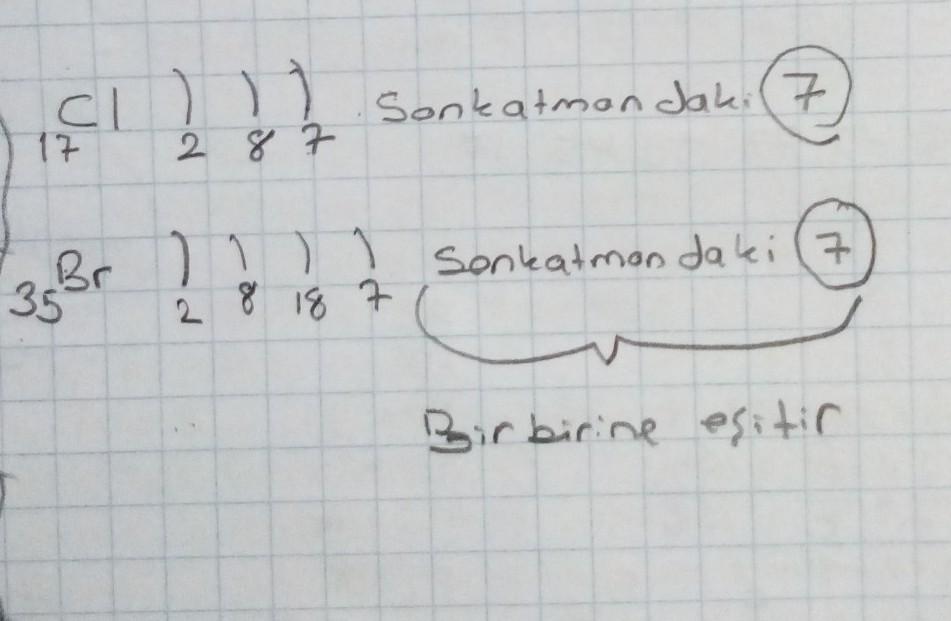 17 Cl ) ) ) Sonkatmandaki 7
2 8 7
35 Br ) ) ) ) Sonkatmandaki 7
2 8 18 7
Birbirine eşitir